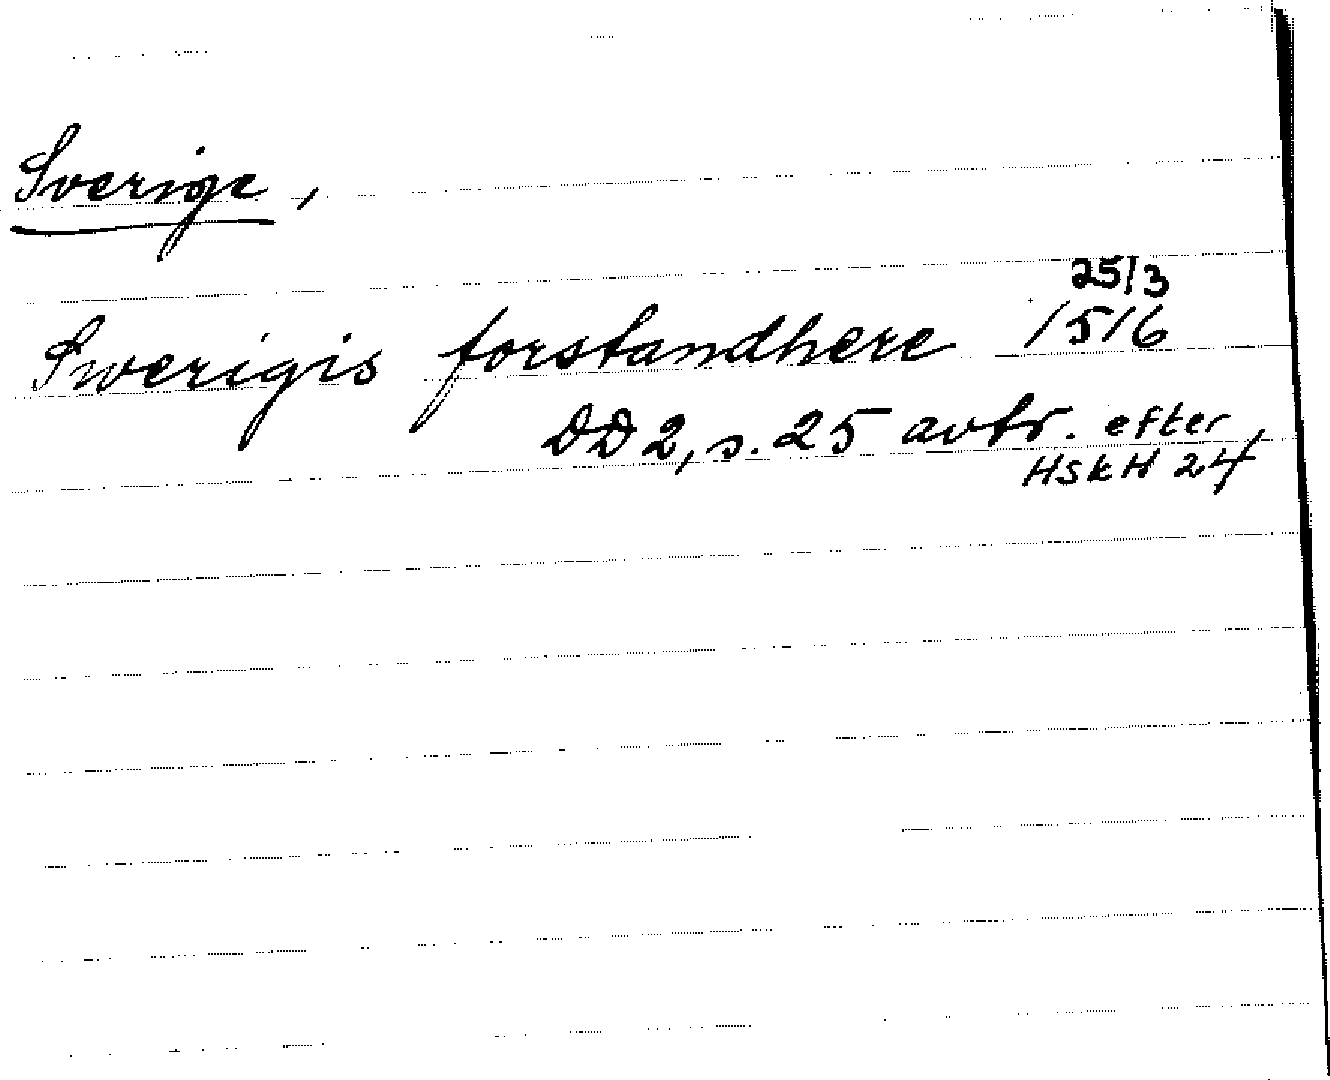 Sverige,
25/3
Swerigis forstandhere 1516
DD 2, s. 25 avtr. efter
HSkH 24